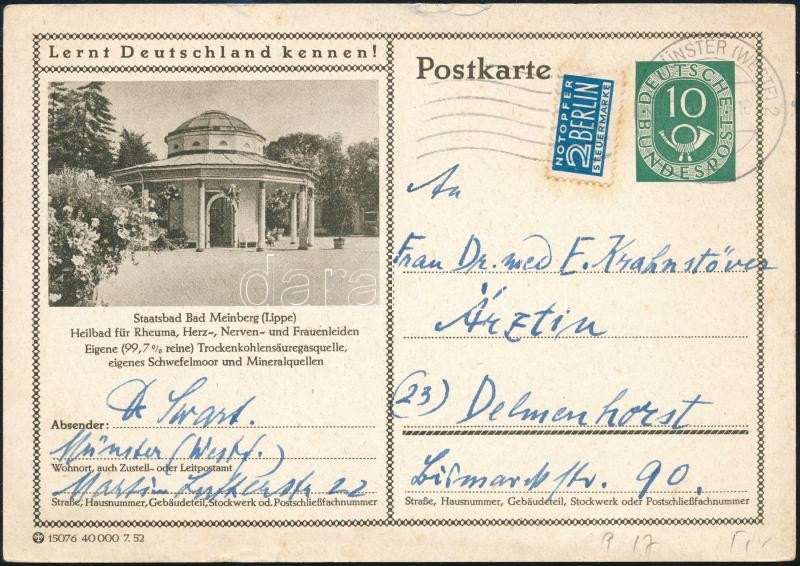 Lernt Deutschland kennen!
Staatsbad Bad Meinberg (Lippe)
Heilbad für Rheuma, Herz-, Nerven- und Frauenleiden
Eigene (99,7% reine) Trockenkohlensäuregasquelle,
eigenes Schwefelmoor und Mineralquellen
Absender: Dr Swart.
Münster (Westf.)
Wohnort, auch Zustell- oder Leitpostamt
Martin Lutherstr 22
Straße, Hausnummer, Gebäudeteil, Stockwerk od. Postschließfachnummer
15076 40 000 7.52
Postkarte
NOTOPFER
2 BERLIN
STEUERMARKE
DEUTSCHE
10
BUNDESPOST
MÜNSTER (WESTF) 2
An
Frau Dr. med E. Krahnstöver
Ärztin
(23) Delmenhorst
Bismarckstr. 90.
Straße, Hausnummer, Gebäudeteil, Stockwerk oder Postschließfachnummer
P 17